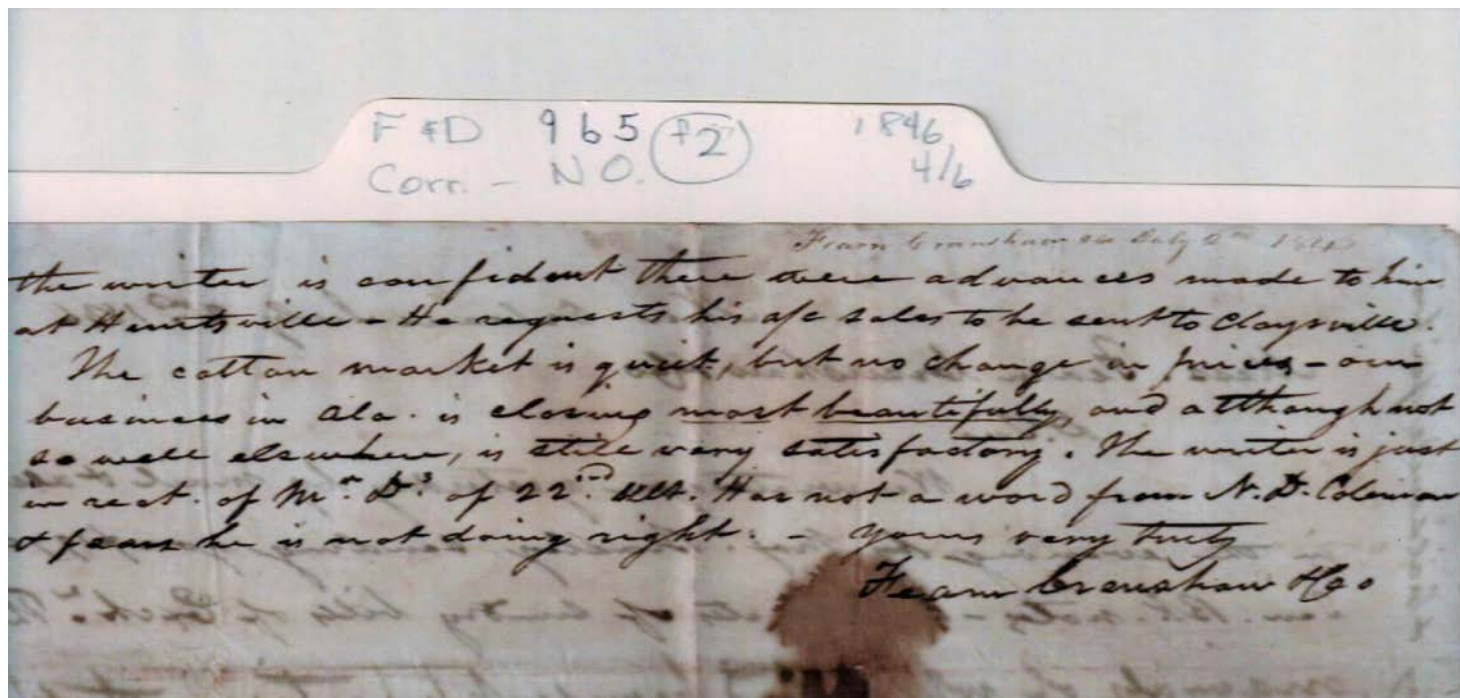 F & D 965 p2 1846
Corr. - N O. 4/6
Fearn Crenshaw & Co July 2nd 1846
the writer is confident there were advances made to him
at Huntsville - He requests his a/c sales to be sent to Claysville.
The cotton market is quiet, but no change in prices - our
business in Ala. is closing most beautifully, and although not
so well elsewhere, is still very satisfactory. The writer is just
in rect. of Mr. D's of 22nd ult. Has not a word from N. D. Coleman
& fears he is not doing right. - yours very truly
Fearn Crenshaw & Co